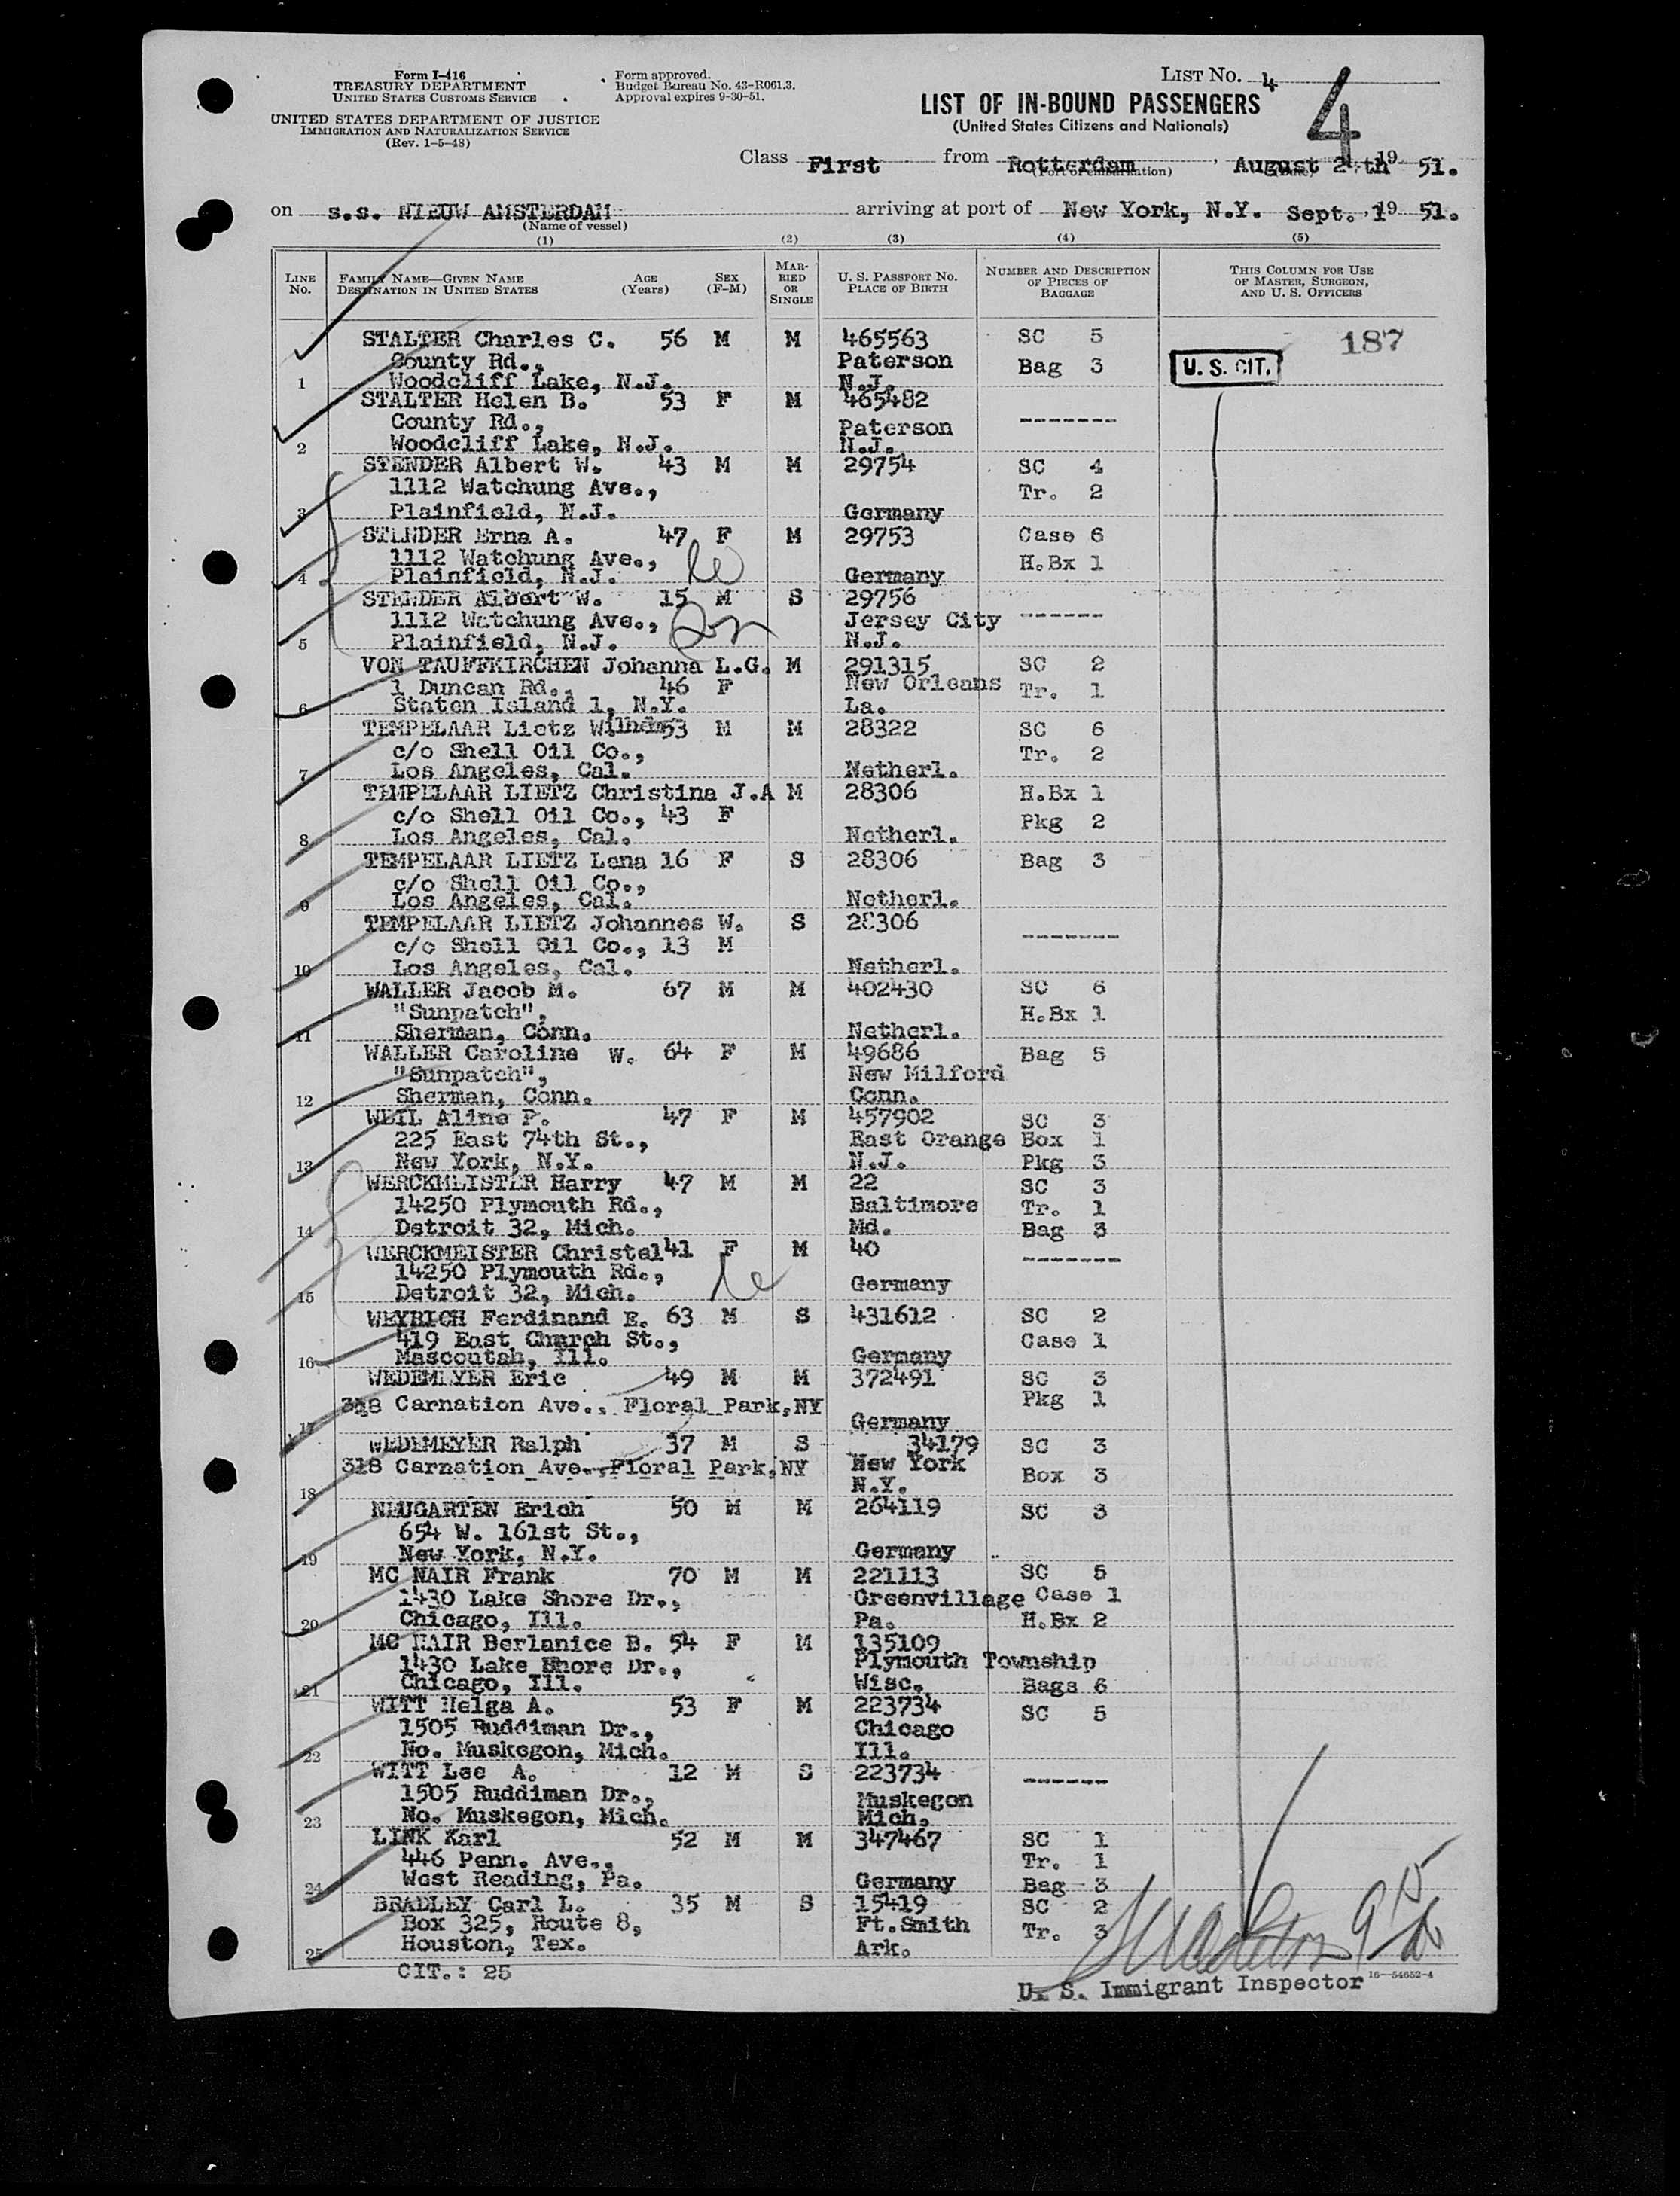 Form I-416
TREASURY DEPARTMENT
UNITED STATES CUSTOMS SERVICE
UNITED STATES DEPARTMENT OF JUSTICE
IMMIGRATION AND NATURALIZATION SERVICE
(Rev. 1-5-48)
Form approved.
Budget Bureau No. 43-R061.3.
Approval expires 9-30-51.
LIST No. 4
4
LIST OF IN-BOUND PASSENGERS
(United States Citizens and Nationals)
Class First from Rotterdam, August 24th 19 51.
(Port of embarkation) (Date)
on s.s. NIEUW AMSTERDAM arriving at port of New York, N.Y. Sept. 1, 19 51.
(Name of vessel)
(1) (2) (3) (4) (5)
LINE No. FAMILY NAME—GIVEN NAME DESTINATION IN UNITED STATES AGE (Years) SEX (F-M) MARRIED OR SINGLE U. S. PASSPORT No. PLACE OF BIRTH NUMBER AND DESCRIPTION OF PIECES OF BAGGAGE THIS COLUMN FOR USE OF MASTER, SURGEON, AND U. S. OFFICERS
STALTER Charles C. 56 M M 465563 SC 5 187
County Rd., Paterson Bag 3 U. S. CIT.
1 Woodcliff Lake, N.J. N.J.
STALTER Helen B. 53 F M 465482 -------
County Rd., Paterson
2 Woodcliff Lake, N.J. N.J.
STENDER Albert W. 43 M M 29754 SC 4
1112 Watchung Ave., Tr. 2
3 Plainfield, N.J. Germany
STENDER Erna A. 47 F M 29753 Case 6
1112 Watchung Ave., H.Bx 1
4 Plainfield, N.J. Germany
STENDER Albert W. 15 M S 29756 ------
1112 Watchung Ave., Jersey City
5 Plainfield, N.J. N.J.
VON TAUFFKIRCHEN Johanna L.G. M 291315 SC 2
1 Duncan Rd., 46 F New Orleans Tr. 1
6 Staten Island 1, N.Y. La.
TEMPELAAR Lietz Wilhdm 53 M M 28322 SC 6
c/o Shell Oil Co., Tr. 2
7 Los Angeles, Cal. Netherl.
TEMPELAAR LIETZ Christina J.A M 28306 H.Bx 1
c/o Shell Oil Co., 43 F Pkg 2
8 Los Angeles, Cal. Netherl.
TEMPELAAR LIETZ Lena 16 F S 28306 Bag 3
c/o Shell Oil Co.,
9 Los Angeles, Cal. Netherl.
TEMPELAAR LIETZ Johannes W. S 28306 -------
c/o Shell Oil Co., 13 M
10 Los Angeles, Cal. Netherl.
WALLER Jacob M. 67 M M 402430 SC 6
"Sunpatch", H.Bx 1
11 Sherman, Conn. Netherl.
WALLER Caroline W. 64 F M 49686 Bag 5
"Sunpatch", New Milford
12 Sherman, Conn. Conn.
WEIL Aline P. 47 F M 457902 SC 3
225 East 74th St., East Orange Box 1
13 New York, N.Y. N.J. Pkg 3
WERCKMEISTER Harry 47 M M 22 SC 3
14250 Plymouth Rd., Baltimore Tr. 1
14 Detroit 32, Mich. Md. Bag 3
WERCKMEISTER Christel 41 F M 40 -------
14250 Plymouth Rd.,
15 Detroit 32, Mich. Germany
WEYRICH Ferdinand E. 63 M S 431612 SC 2
419 East Church St., Case 1
16 Mascoutah, Ill. Germany
WEDEMEYER Eric 49 M M 372491 SC 3
318 Carnation Ave., Floral Park, NY Pkg 1
17 Germany
WEDEMEYER Ralph 37 M S 34179 SC 3
318 Carnation Ave., Floral Park, NY New York Box 3
18 N.Y.
NEUGARTEN Erich 50 M M 264119 SC 3
654 W. 161st St.,
19 New York, N.Y. Germany
MC NAIR Frank 70 M M 221113 SC 5
1430 Lake Shore Dr., Greenvillage Case 1
20 Chicago, Ill. Pa. H.Bx 2
MC NAIR Berlanice B. 54 F M 135109
1430 Lake Shore Dr., Plymouth Township
21 Chicago, Ill. Wisc. Bags 6
WITT Helga A. 53 F M 223734 SC 5
1505 Ruddiman Dr., Chicago
22 No. Muskegon, Mich. Ill.
WITT Lee A. 12 M S 223734 ------
1505 Ruddiman Dr., Muskegon
23 No. Muskegon, Mich. Mich.
LINK Karl 52 M M 347467 SC 1
446 Penn. Ave., Tr. 1
24 West Reading, Pa. Germany Bag 3
BRADLEY Carl L. 35 M S 15419 SC 2
Box 325, Route 8, Ft.Smith Tr. 3
25 Houston, Tex. Ark.
CIT.: 25
U. S. Immigrant Inspector 16—54652-4